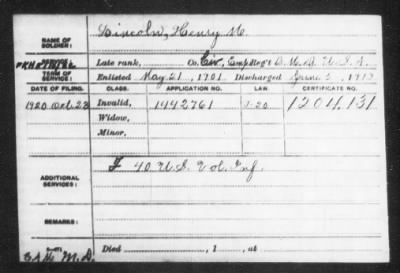 NAME OF SOLDIER: Lincoln, Henry M.
SERVICE: Late rank, Co. Civ. Emp Reg't Q. M. D. U.S.A.
TERM OF SERVICE: Enlisted May 21, 1901. Discharged June 2, 1913
DATE OF FILING. CLASS. APPLICATION NO. LAW CERTIFICATE NO.
1920 Oct. 23 Invalid, 1442761 1-20 1204,131
Widow,
Minor,
ADDITIONAL SERVICES: F 40 U.S. Vol. Inf.
REMARKS:
M. D. Died , 1 , at